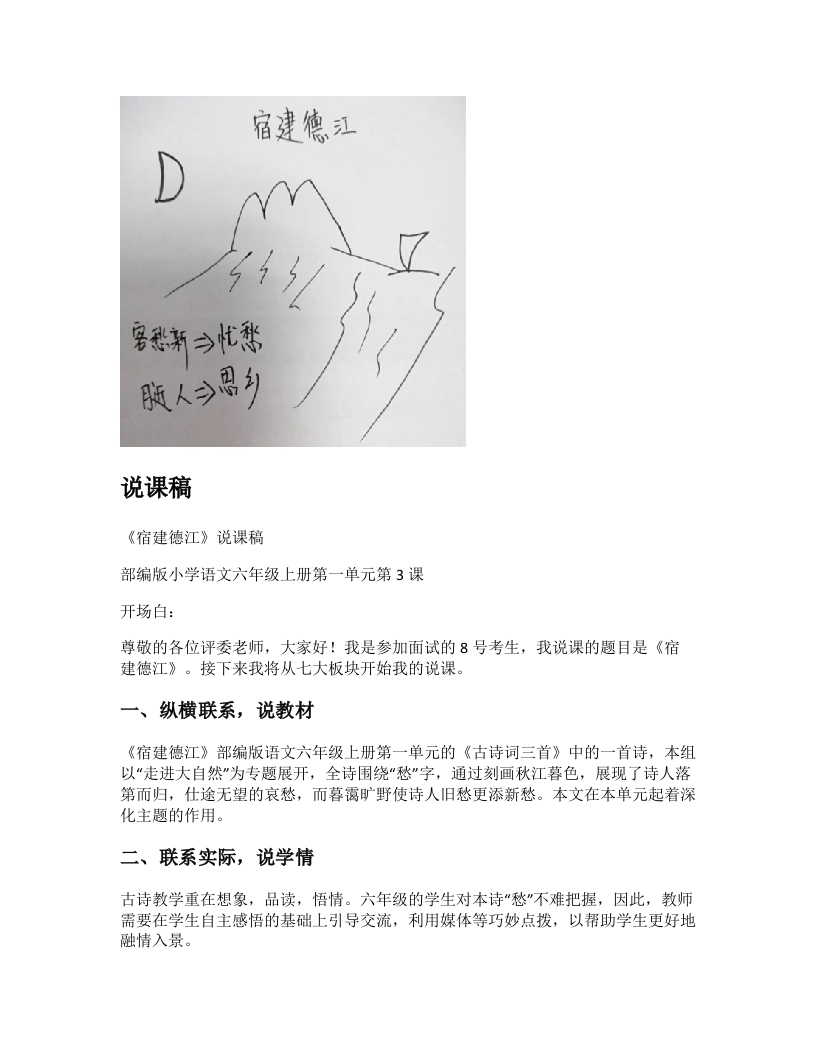 宿建德江
客愁新⇒忧愁
月近人⇒思乡
说课稿
《宿建德江》说课稿
部编版小学语文六年级上册第一单元第 3 课
开场白：
尊敬的各位评委老师，大家好！我是参加面试的 8 号考生，我说课的题目是《宿
建德江》。接下来我将从七大板块开始我的说课。
一、纵横联系，说教材
《宿建德江》部编版语文六年级上册第一单元的《古诗词三首》中的一首诗，本组
以“走进大自然”为专题展开，全诗围绕“愁”字，通过刻画秋江暮色，展现了诗人落
第而归，仕途无望的哀愁，而暮霭旷野使诗人旧愁更添新愁。本文在本单元起着深
化主题的作用。
二、联系实际，说学情
古诗教学重在想象，品读，悟情。六年级的学生对本诗“愁”不难把握，因此，教师
需要在学生自主感悟的基础上引导交流，利用媒体等巧妙点拨，以帮助学生更好地
融情入景。